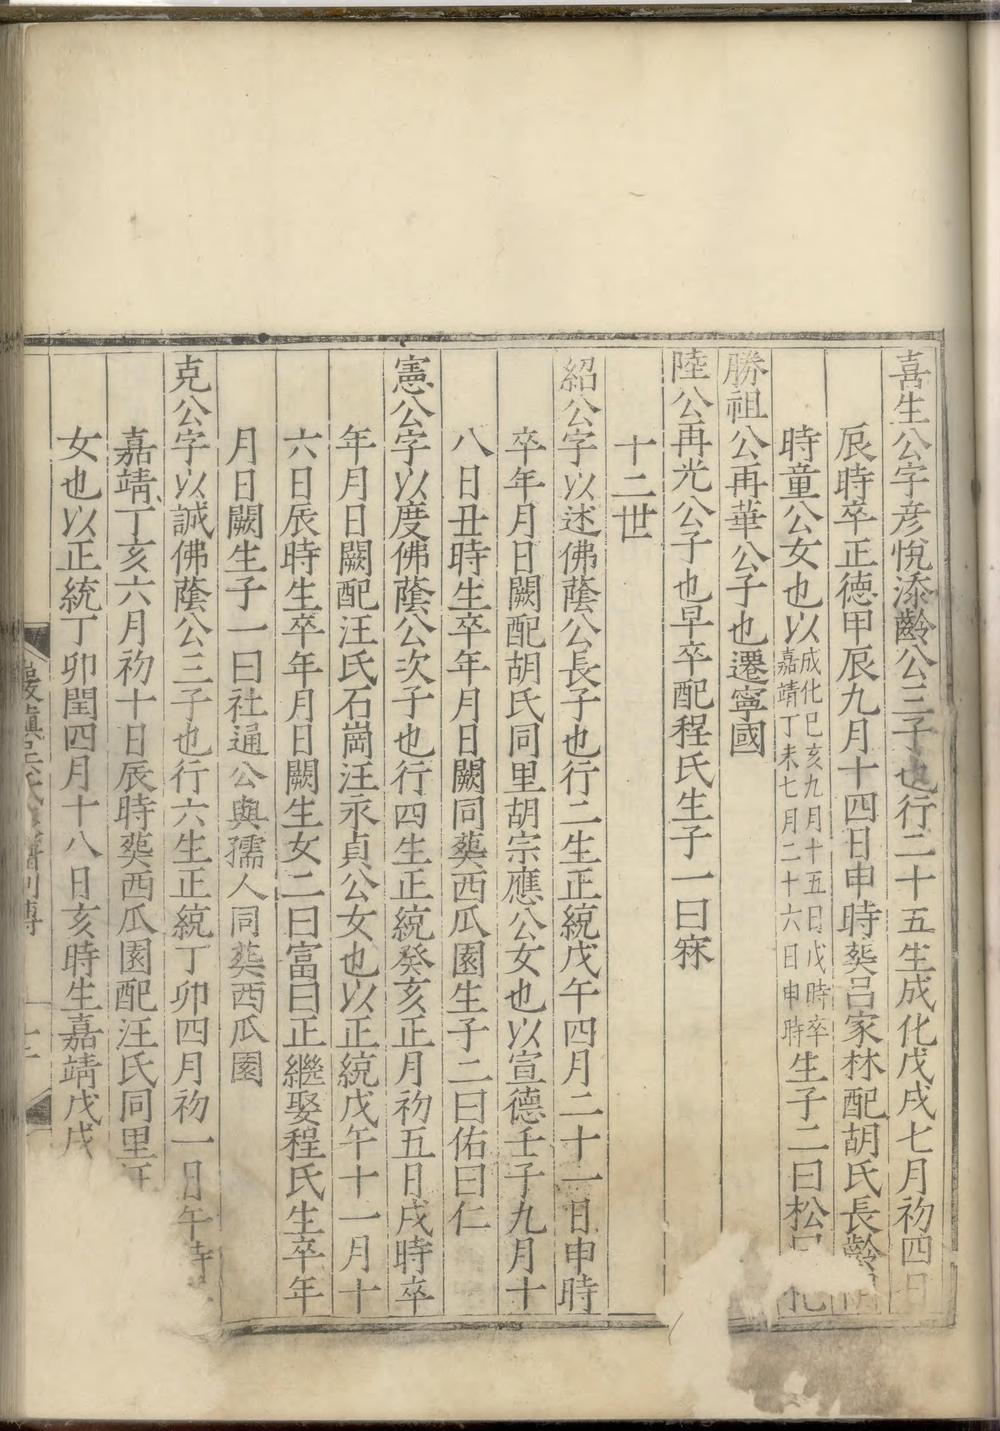 喜生公字彥悅添齡公三子也行二十五生成化戊戌七月初四日
辰時卒正德甲辰九月十四日申時葬呂家林配胡氏長齡
時童公女也以成化己亥九月十五日戊時卒嘉靖丁未七月二十六日申時生子二曰松曰
勝祖公再華公子也遷寧國
陸公再光公子也早卒配程氏生子一曰寐
十二世
紹公字以述佛蔭公長子也行二生正統戊午四月二十一日申時
卒年月日闕配胡氏同里胡宗應公女也以宣德壬子九月十
八日丑時生卒年月日闕同葬西瓜園生子二曰佑曰仁
憲公字以度佛蔭公次子也行四生正統癸亥正月初五日戌時卒
年月日闕配汪氏石崗汪永貞公女也以正統戊午十一月十
六日辰時生卒年月日闕生女二曰富曰正繼娶程氏生卒年
月日闕生子一曰社通公與孺人同葬西瓜園
克公字以誠佛蔭公三子也行六生正統丁卯四月初一日午時
嘉靖丁亥六月初十日辰時葬西瓜園配汪氏同里汪
女也以正統丁卯閏四月十八日亥時生嘉靖戊戌